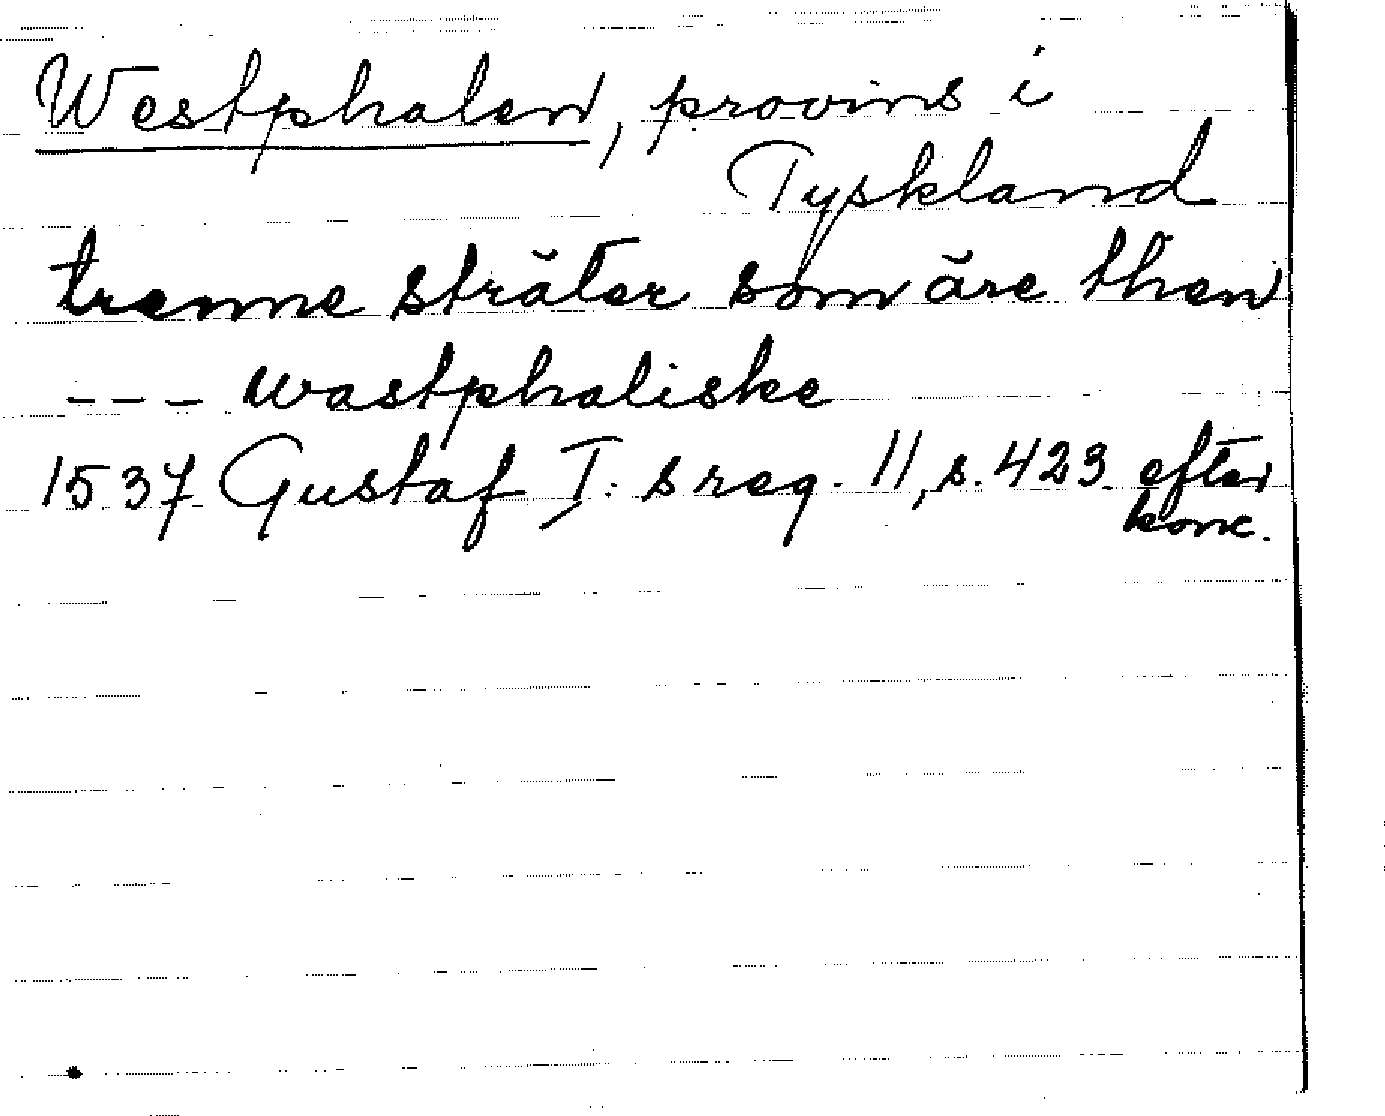 Westphalen, provins i
Tyskland
trenne sträter som äre then
--- wastphaliske
1537 Gustaf I:s reg. 11, s. 423 efter
konc.